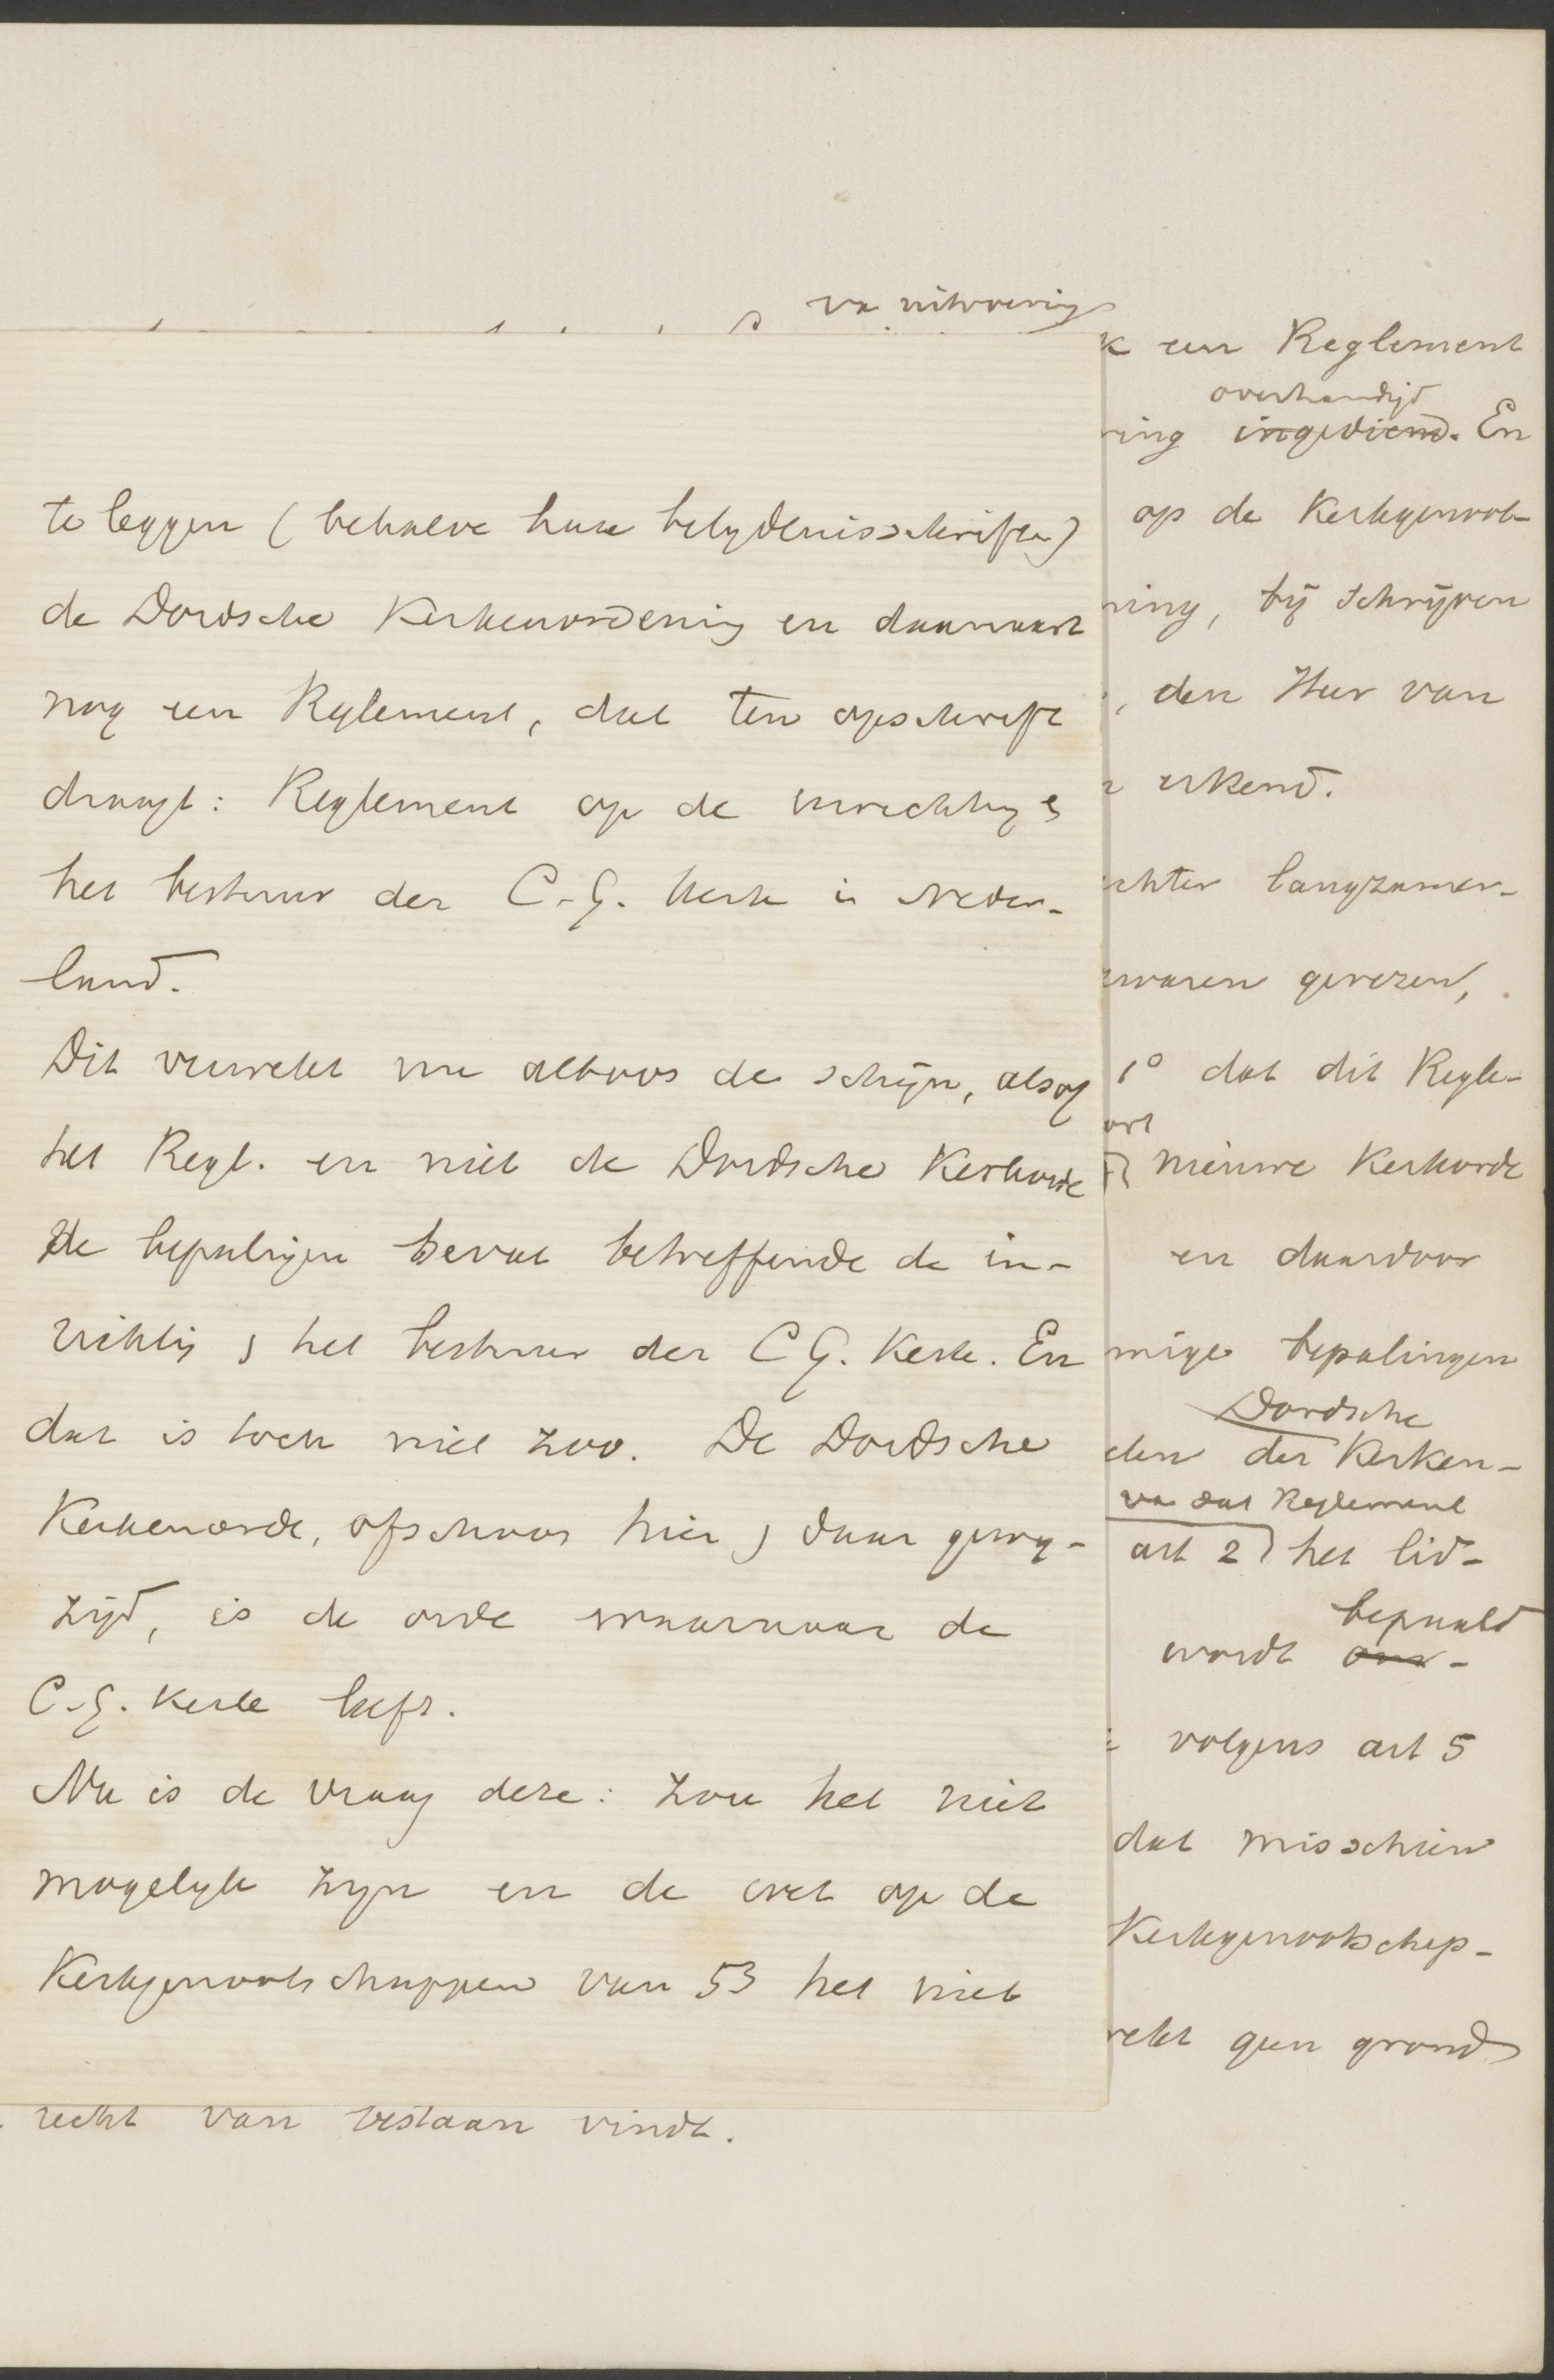 va uitvoering
te leggen (behalve hare belydenisschriften)
de Dordsche Kerkenordening en daarnaast
nog een Reglement, dat ten opschrift
draagt: Reglement op de inrichting &
het bestuur der C.G. Kerk in Neder-
land.
Dit verwekt nu althans de schijn, alsof
het Regl. en niet de Dordsche Kerkorde
de bepalingen bevat betreffende de in-
richting & het bestuur der C G. Kerk. En
dat is toch niet zoo. De Dordsche
Kerkenorde, ofschoon hier & daar gewy-
zijd, is de orde waarnaar de
C.G. Kerk leeft.
Nu is de vraag deze: zou het niet
mogelyk zyn en de wet op de
Kerkgenootschappen van 53 het niet
recht van bestaan vindt.
k een Reglement
overhandigd
ring ingediend. En
op de Kerkgenoot-
ning, bij schrijven
, den Heer van
erkend.
chter langzamer-
waren gerezen,
1° dat dit Regle-
ort
nieuwe Kerkorde
en daardoor
mige bepalingen
Dordsche
elen der Kerken-
va dat Reglement
art 2 het lid-
bepaald
wordt
volgens art 5
dat misschien
Kerkgenootschap-
rekt geen grond